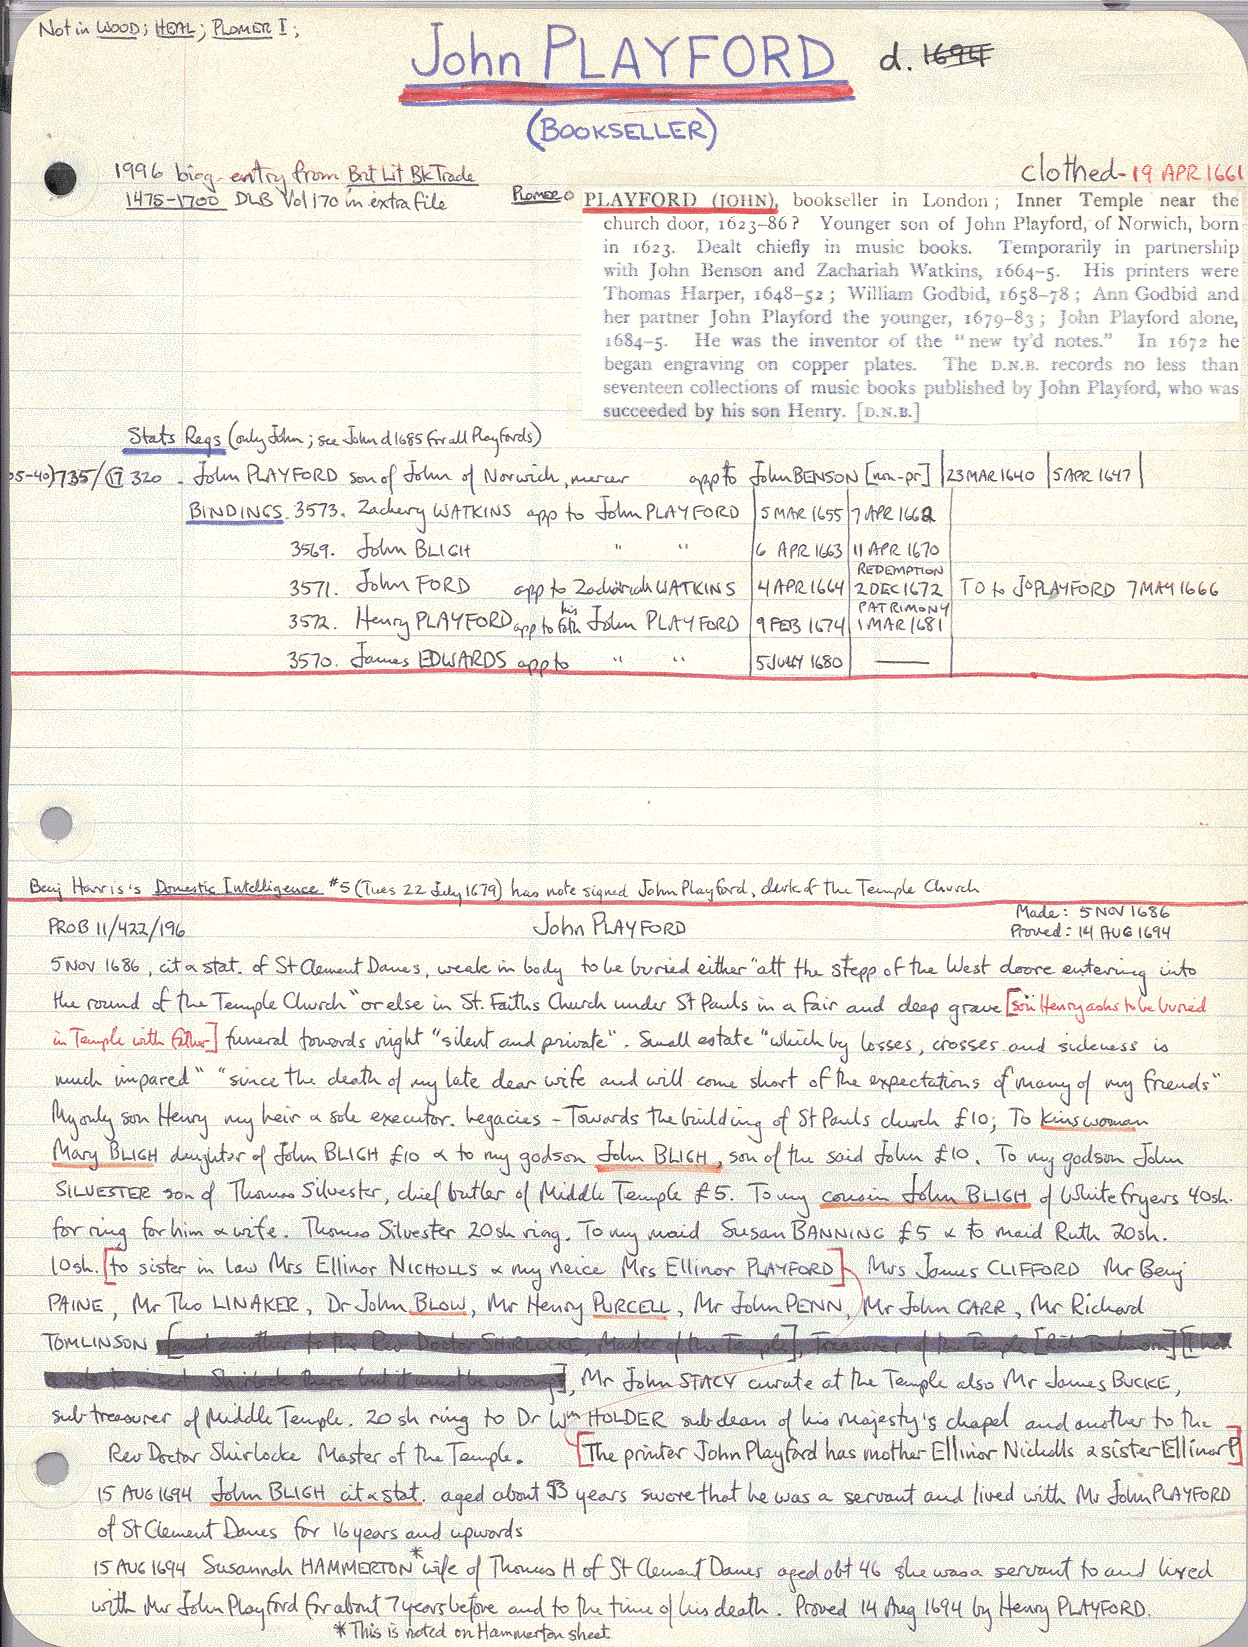 Not in WOOD; HEAL; PLOMER I;
John PLAYFORD d. 1694
(BOOKSELLER)
1996 biog-entry from Brit Lit Bk Trade
1475-1700 DLB Vol 170 in extra file
clothed - 19 APR 1661
PLOMER PLAYFORD (JOHN), bookseller in London; Inner Temple near the
church door, 1623-86? Younger son of John Playford, of Norwich, born
in 1623. Dealt chiefly in music books. Temporarily in partnership
with John Benson and Zachariah Watkins, 1664-5. His printers were
Thomas Harper, 1648-52; William Godbid, 1658-78; Ann Godbid and
her partner John Playford the younger, 1679-83; John Playford alone,
1684-5. He was the inventor of the "new ty'd notes." In 1672 he
began engraving on copper plates. The D.N.B. records no less than
seventeen collections of music books published by John Playford, who was
succeeded by his son Henry. [D.N.B.]
Stats Regs (only John; see John d 1685 for all Playfords)
05-40) 735/17 320. John PLAYFORD son of John of Norwich, mercer app to John BENSON [non-pr] 23 MAR 1640 5 APR 1647
BINDINGS 3573. Zachery WATKINS app to John PLAYFORD 5 MAR 1655 7 APR 1662
3569. John BLIGH " " 6 APR 1663 11 APR 1670
REDEMPTION
3571. John FORD app to Zachariah WATKINS 4 APR 1664 2 DEC 1672 TO to Jo PLAYFORD 7 MAY 1666
PATRIMONY
3572. Henry PLAYFORD app to his fath John PLAYFORD 9 FEB 1674 1 MAR 1681
3570. James EDWARDS app to " " 5 JULY 1680 ——
Benj Harris's Domestic Intelligence #5 (Tues 22 July 1679) has note signed John Playford, clerk of the Temple Church
PROB 11/422/196 John PLAYFORD Made: 5 NOV 1686
Proved: 14 AUG 1694
5 NOV 1686, cit & stat. of St Clement Danes, weake in body to be buried either "att the stepp of the West doore entering into
the round of the Temple Church" or else in St. Faiths Church under St Pauls in a fair and deep grave [son Henry asks to be buried
in Temple with father] funeral towards night "silent and private". Small estate "which by losses, crosses and sickness is
much impared" "since the death of my late dear wife and will come short of the expectations of many of my friends"
My only son Henry my heir & sole executor. Legacies - Towards the building of St Pauls church £10; To Kinswoman
Mary BLIGH daughter of John BLIGH £10 & to my godson John BLIGH, son of the said John £10. To my godson John
SILVESTER son of Thomas Silvester, chief butler of Middle Temple £5. To my cousin John BLIGH of Whitefryers 40sh.
for ring for him & wife. Thomas Silvester 20sh ring. To my maid Susan BANNING £5 & to maid Ruth 20sh.
10sh. [to sister in law Mrs Ellinor NICHOLLS & my neice Mrs Ellinor PLAYFORD] Mrs James CLIFFORD Mr Benj
PAINE, Mr Tho LINAKER, Dr John BLOW, Mr Henry PURCELL, Mr John PENN, Mr John CARR, Mr Richard
TOMLINSON
, Mr John STACY curate at the Temple also Mr James BUCKE,
sub treasurer of Middle Temple. 20 sh ring to Dr Wm HOLDER sub dean of his majesty's chapel and another to the
Rev Doctor Shirlocke Master of the Temple. [The printer John Playford has mother Ellinor Nicholls & sister Ellinor P]
15 AUG 1694 John BLIGH cit & stat. aged about 53 years swore that he was a servant and lived with Mr John PLAYFORD
of St Clement Danes for 16 years and upwards
15 AUG 1694 Susannah HAMMERTON* wife of Thomas H of St Clement Danes aged abt 46 she was a servant to and lived
with Mr John Playford for about 7 years before and to the time of his death. Proved 14 Aug 1694 by Henry PLAYFORD.
* This is noted on Hammerton sheet